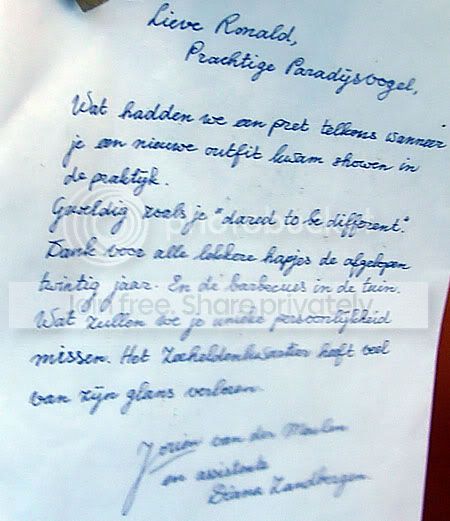 Lieve Ronald,
Prachtige Paradijsvogel,
Wat hadden we een pret telkens wanneer
je een nieuwe outfit kwam showen in
de praktijk.
Geweldig zoals je "dared to be different".
photobucket
Dank voor alle lekkere hapjes de afgelopen
twintig jaar. En de barbecues in de tuin.
Join free. Share privately
Wat zullen we je unieke persoonlijkheid
missen. Het Zeeheldenkwartier heeft veel
van zijn glans verloren.
Jorien van der Meulen
en assistente
Diana Zandbergen.